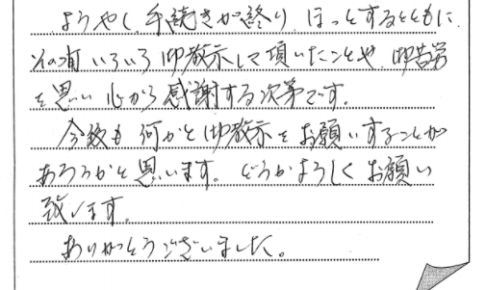 ようやく手続きが終り ほっとするとともに
その間いろいろ御教示して頂いたことや 御苦労
を思い 心から感謝する次第です。
今後も 何かと御教示をお願いすることが
あろうかと思います。どうかよろしくお願い
致します。
ありがとうございました。